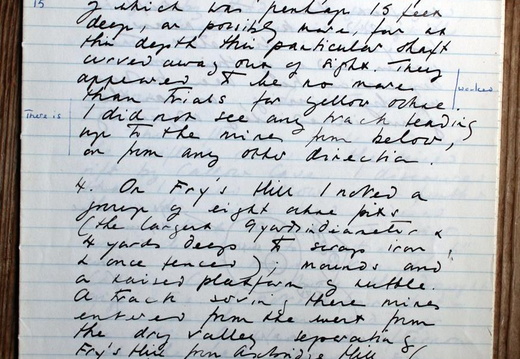 15
of which was perhaps 15 feet
deep, or possibly more, for at
this depth this particular shaft
curved away out of sight. They
appeared to be no more
worked
than trials for yellow ochre.
There is
I did not see any track leading
up to the mines from below,
or from any other direction.
4. On Fry's Hill I noted a
group of eight ochre pits
(the largest 9 yards in diameter &
4 yards deep & scrap iron,
& once fenced); mounds and
a raised platform of rubble.
A track serving these mines
entered from the west from
the dry valley separating
Fry's Hill from Axbridge Hill (